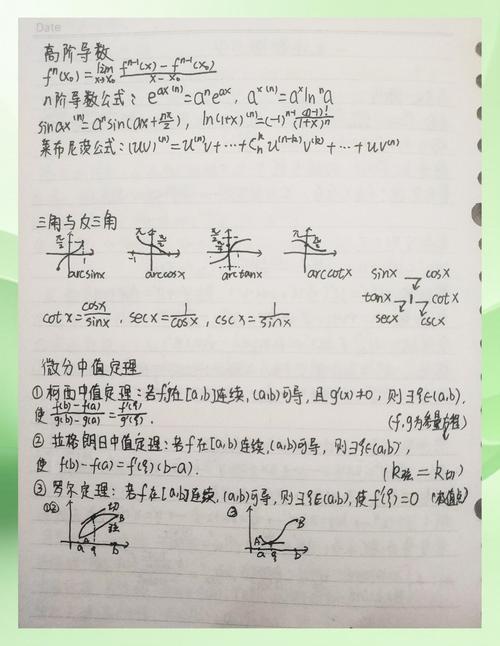 Date
高阶导数
fⁿ(x₀) = lim x→x₀ (fⁿ⁻¹(x) - fⁿ⁻¹(x₀))/(x - x₀)
n阶导数公式: e^ax⁽ⁿ⁾ = aⁿe^ax, a^x⁽ⁿ⁾ = a^x lnⁿa
sin ax⁽ⁿ⁾ = aⁿ sin(ax + nπ/2), ln(1+x)⁽ⁿ⁾ = (-1)ⁿ⁻¹ (n-1)!/(1+x)ⁿ
莱布尼茨公式: (uv)⁽ⁿ⁾ = u⁽ⁿ⁾v + ··· + Cₙᵏ u⁽ⁿ⁻ᵏ⁾v⁽ᵏ⁾ + ··· + uv⁽ⁿ⁾
三角与反三角
π/2 π π/2 π/2 π π/2
-1
arcsinx arccosx arctanx arccotx
sinx cosx
tanx 1 cotx
secx cscx
cotx = cosx/sinx, secx = 1/cosx, cscx = 1/sinx
微分中值定理
① 柯西中值定理: 若f在[a,b]连续, (a,b)可导, 且g'(x)≠0, 则∃ξ∈(a,b),
使 (f(b)-f(a))/(g(b)-g(a)) = f'(ξ)/g'(ξ). (f,g为参量方程)
② 拉格朗日中值定理: 若f在[a,b)连续, (a,b)可导, 则∃ξ∈(a,b),
使 f(b)-f(a) = f'(ξ)(b-a). (k弦 = k切)
③ 罗尔定理: 若f在[a,b]连续, (a,b)可导, 则∃ξ∈(a,b), 使f'(ξ)=0 (极值点)
①② 切 B 弦 A a ξ b
③ B A a ξ b